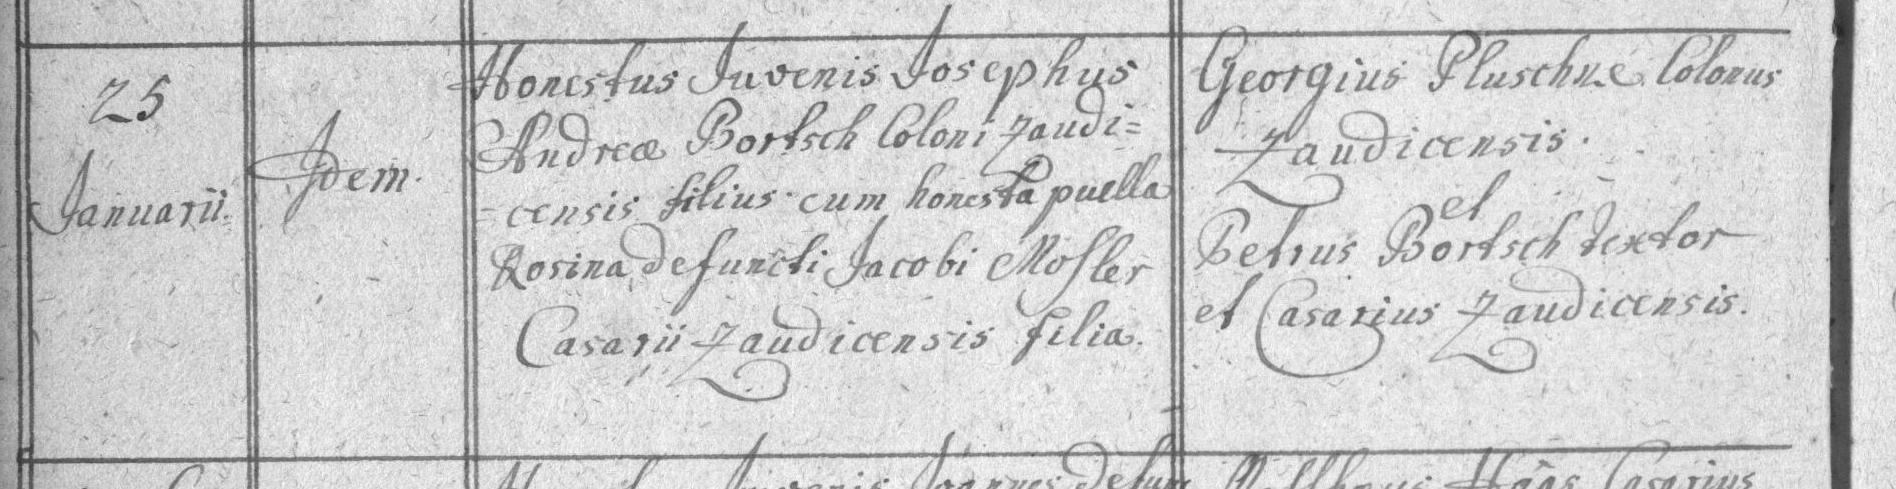 25
Januarii.
Idem.
Honestus Juvenis Josephus
Andreæ Bortsch Coloni Zaudi=
=censis filius cum honesta puella
Rosina defuncti Jacobi Mosler
Casarii Zaudicensis filia.
Georgius Pluschke Colonus
Zaudicensis.
et
Petrus Bortsch textor
et Casarius Zaudicensis.
Juvenis Joannes defun
Haas Casarius